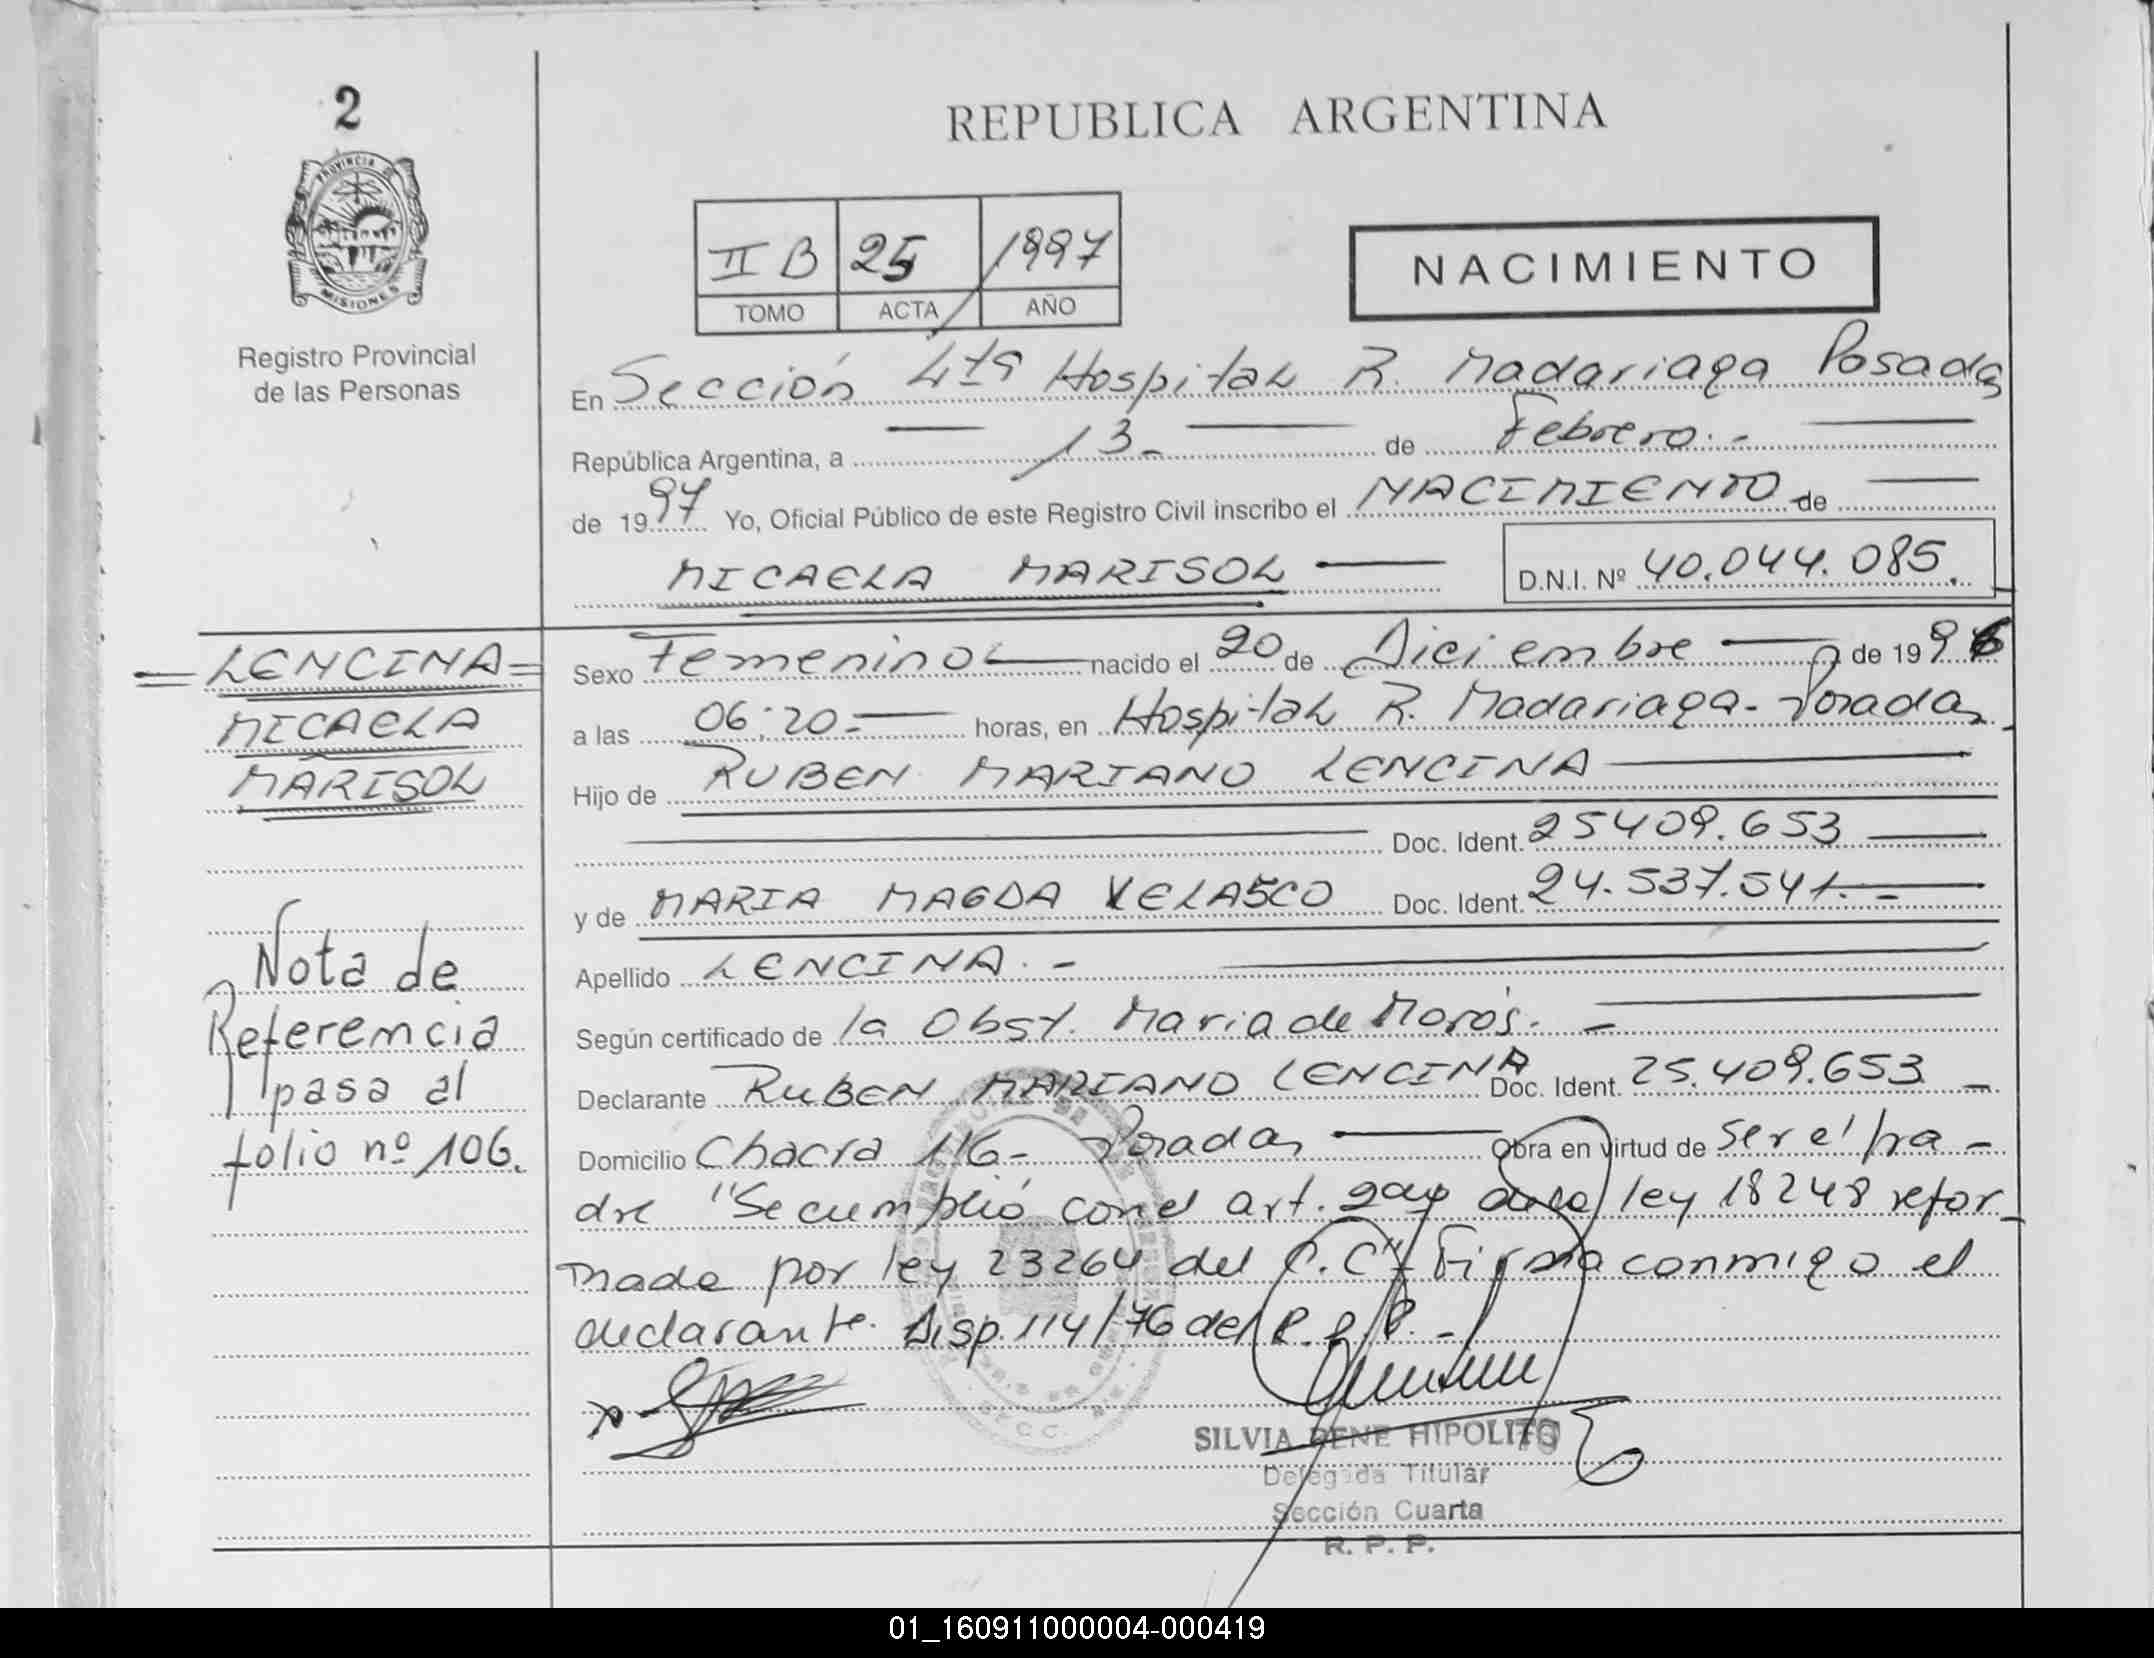 2
PROVINCIA DE
MISIONES
Registro Provincial
de las Personas
REPUBLICA ARGENTINA
II B 25 1997
TOMO ACTA AÑO
NACIMIENTO
En Sección 4ta Hospital R. Madariaga Posadas
República Argentina, a 13- de Febrero.-
de 1997 Yo, Oficial Público de este Registro Civil inscribo el NACIMIENTO de
MICAELA MARISOL D.N.I. Nº 40.044.085.
LENCINA
MICAELA
MARISOL
Nota de
Referencia
pasa al
folio nº 106.
Sexo Femenino nacido el 20 de Diciembre de 1996
a las 06:20.- horas, en Hospital R. Madariaga- Posadas
Hijo de RUBEN MARIANO LENCINA
Doc. Ident. 25409.653
y de MARIA MAGDA VELASCO Doc. Ident. 24.537.541.-
Apellido LENCINA.-
Según certificado de la Obst. Maria de Moros.-
Declarante RUBEN MARIANO LENCINA Doc. Ident. 25.409.653 -
Domicilio Chacra 116- Posadas Obra en virtud de ser el pa-
dre "Se cumplió con el art. de la ley 18248 refor-
mada por ley 23264 del C.C" Firma conmigo el
declarante. Disp. 114/76 del R.P.P.-
SILVIA RENE HIPOLITO
Delegada Titular
Sección Cuarta
R. P. P.
01_160911000004-000419